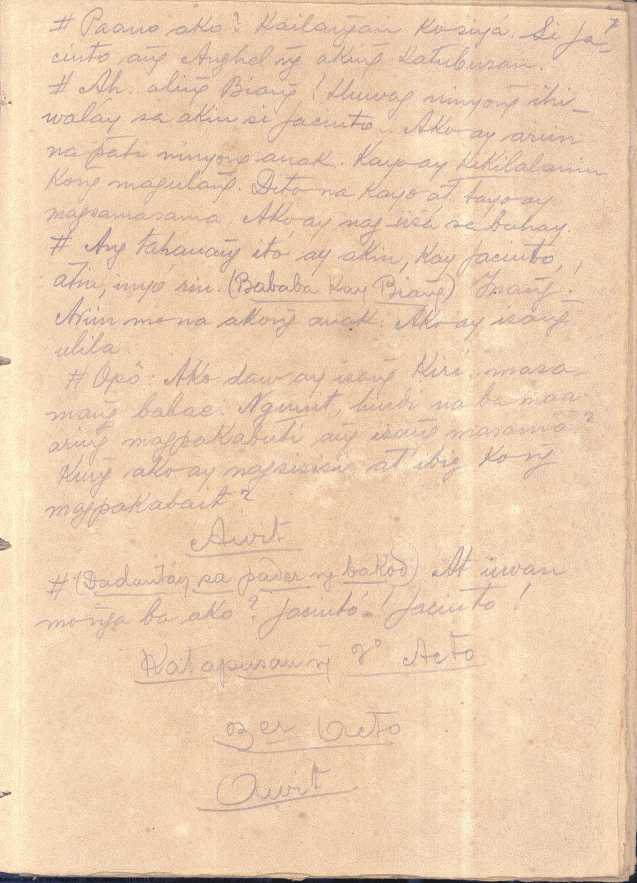 # Paano ako? Kailangan ko siya. Si Ja-
cinto, ang Anghel ng aking katubusan.
# Ah. aling Biang! Huwag ninyong ihi-
walay sa akin si Jacinto. Ako ay ariin
na pati ninyong anak. Kayo ay kikilalanin
kong magulang. Dito na kayo at tayo ay
magsamasama. Ako ay nag-iisa sa buhay.
# Ang tahanang ito ay akin, kay Jacinto,
at inyo rin. (Bababa kay Biang)
Ariin mo na akong anak. Ako ay isang
ulila.
# Opô. Ako daw ay isang Kiri. masa-
mang babae. Nguni't, hindi na ba maa-
aring magpakabuti ang isang masama?
Kung ako ay nagsisisi at ibig kong
magpakabait?
Awit
# (Dadantay sa pader ng bakod) At iiwan
mo nga ba ako? Jacinto! Jacinto!
Katapusan ng 2° Acto
3er Acto
Awit